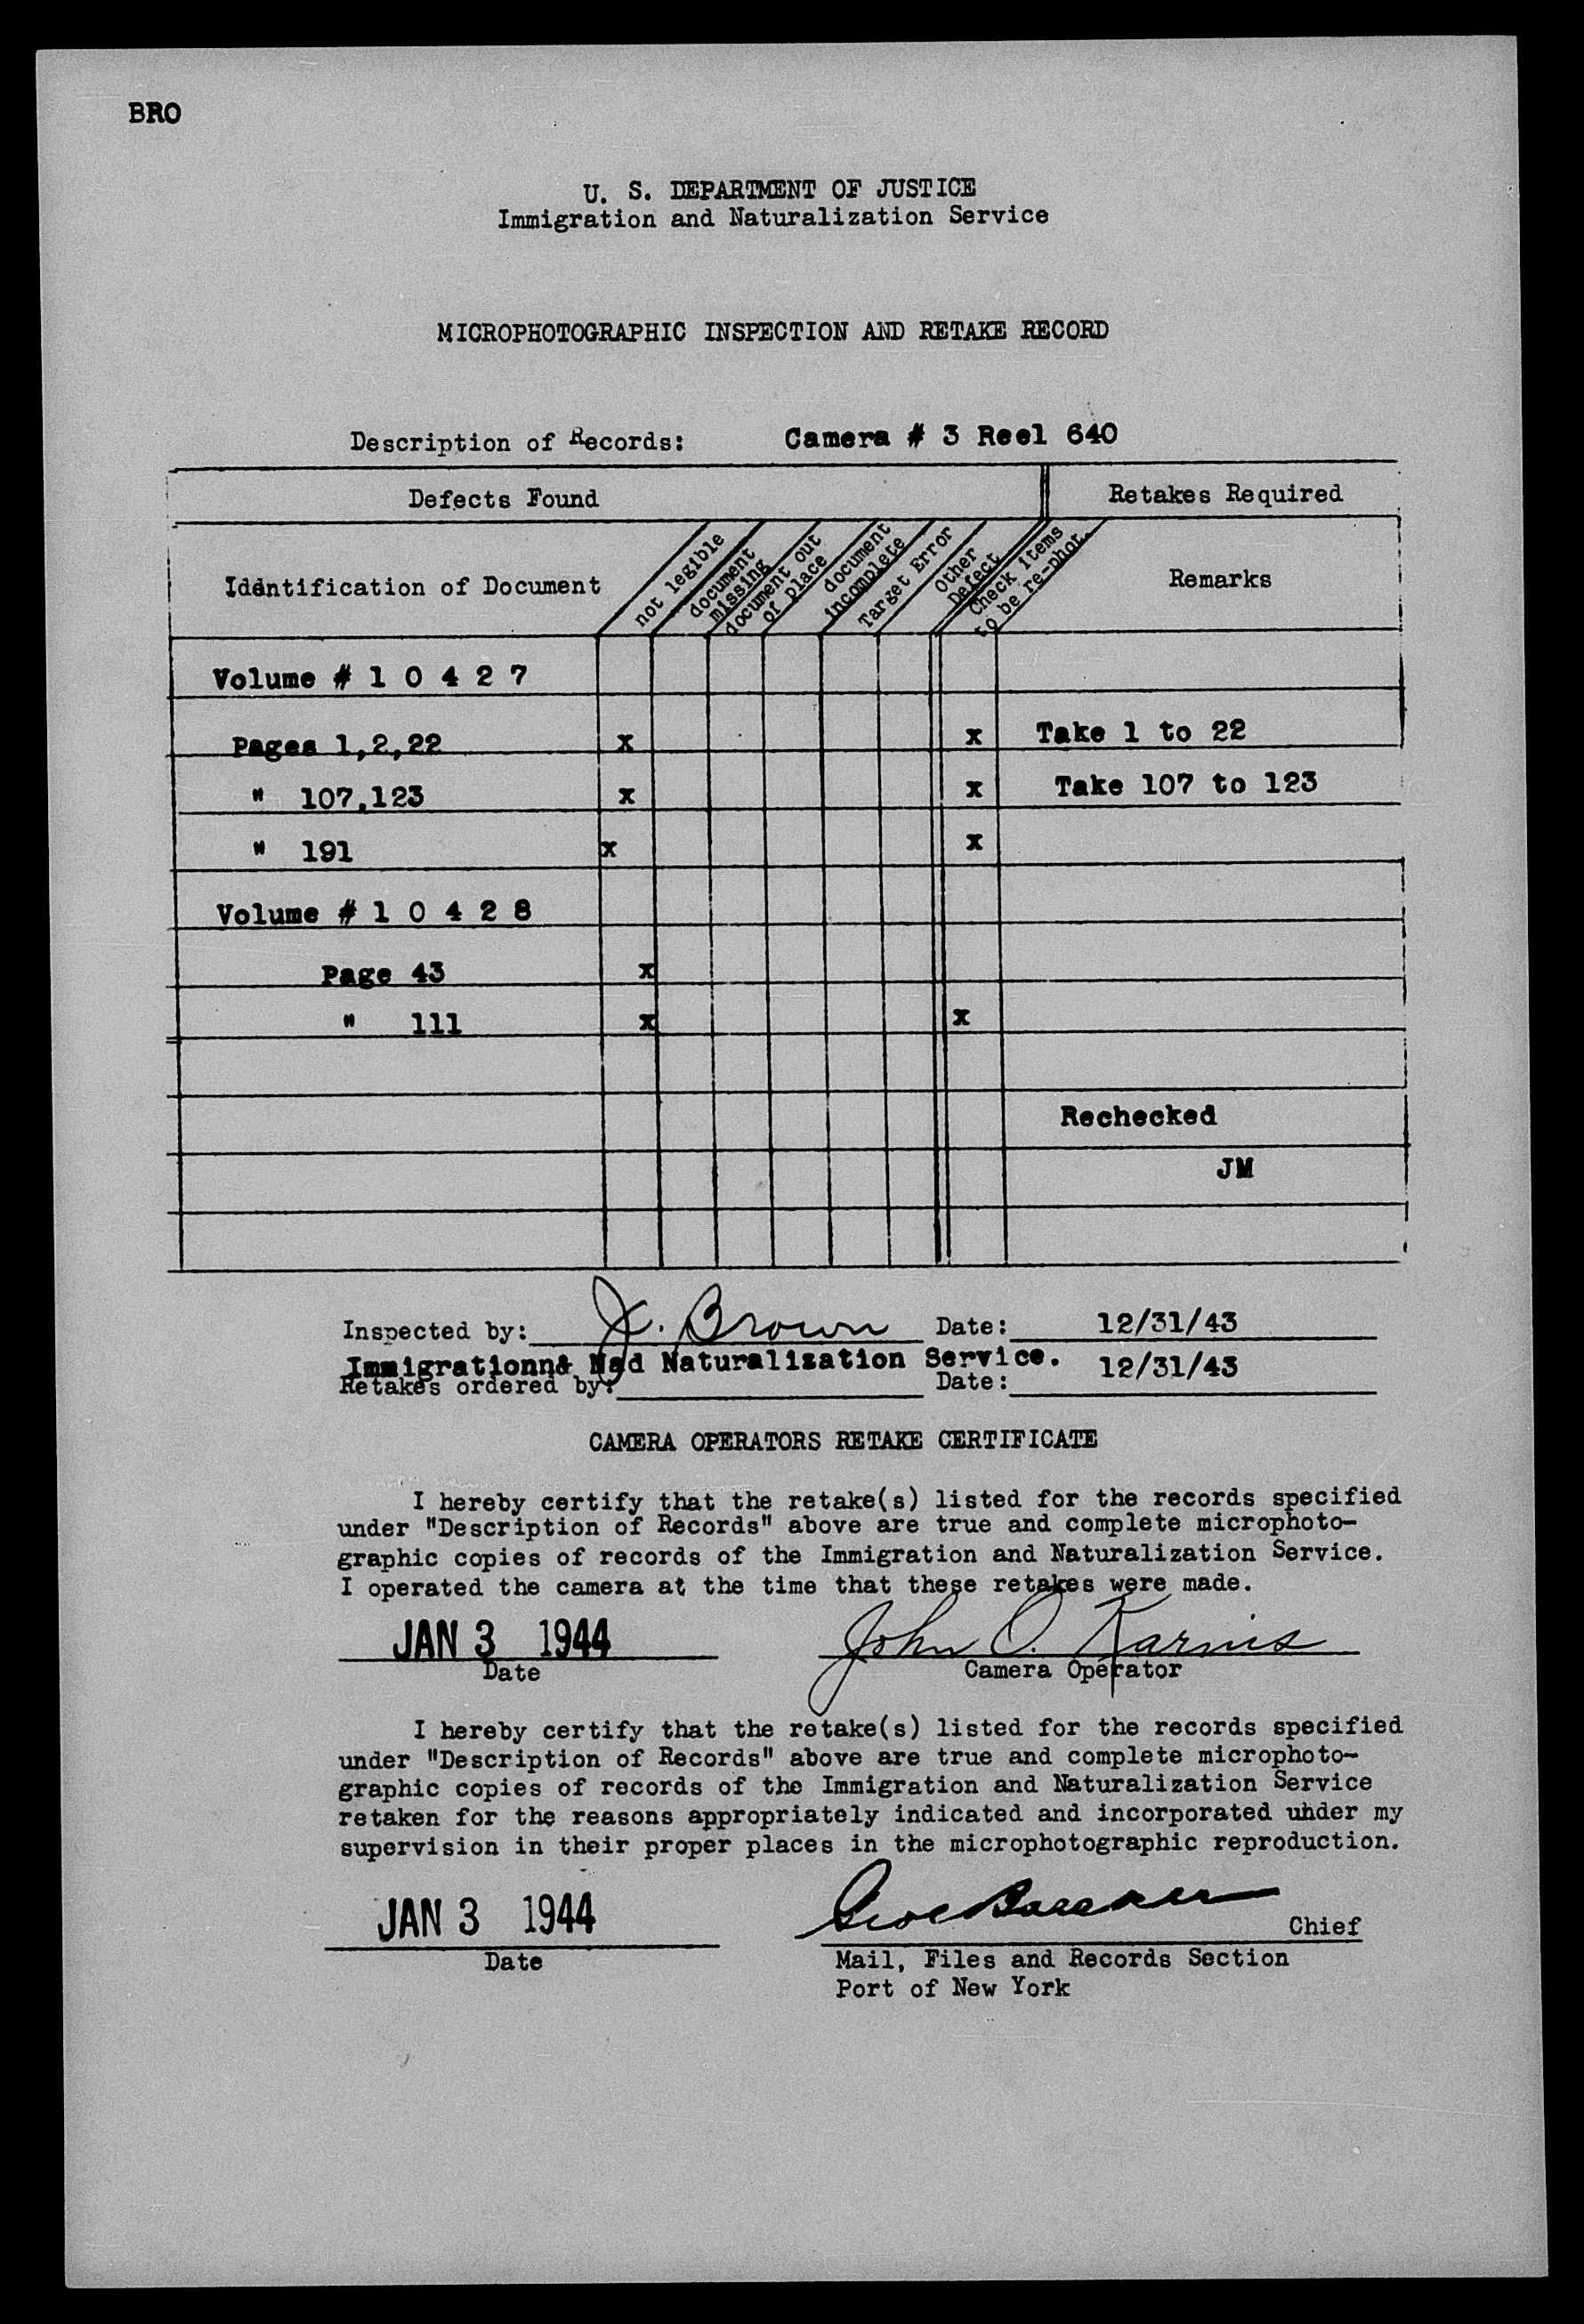 BRO
U. S. DEPARTMENT OF JUSTICE
Immigration and Naturalization Service
MICROPHOTOGRAPHIC INSPECTION AND RETAKE RECORD
Description of Records: Camera # 3 Reel 640
Defects Found Retakes Required
Identification of Document
not legible
document missing
document out of place
document incomplete
Target Error
Other Defect
Check items to be re-phot.
Remarks
Volume # 1 0 4 2 7
Pages 1,2,22 x x Take 1 to 22
" 107,123 x x Take 107 to 123
" 191 x x
Volume # 1 0 4 2 8
Page 43 x
" 111 x x
Rechecked
JM
Inspected by: J. Brown Date: 12/31/43
Immigrationn& Nad Naturalization Service. 12/31/43
Retakes ordered by: Date:
CAMERA OPERATORS RETAKE CERTIFICATE
I hereby certify that the retake(s) listed for the records specified
under "Description of Records" above are true and complete microphoto-
graphic copies of records of the Immigration and Naturalization Service.
I operated the camera at the time that these retakes were made.
JAN 3 1944 John O. Karnis
Date Camera Operator
I hereby certify that the retake(s) listed for the records specified
under "Description of Records" above are true and complete microphoto-
graphic copies of records of the Immigration and Naturalization Service
retaken for the reasons appropriately indicated and incorporated under my
supervision in their proper places in the microphotographic reproduction.
JAN 3 1944 Chief
Date Mail, Files and Records Section
Port of New York